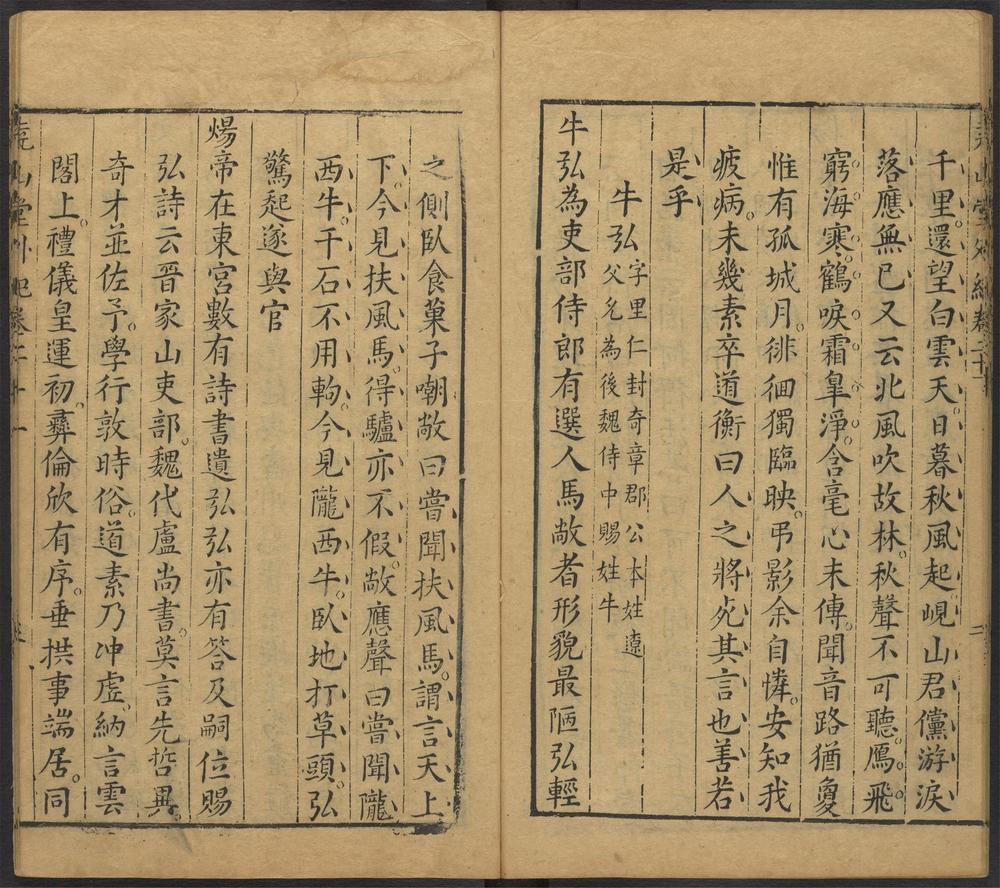 千里還望白雲天日暮秋風起峴山君儻游淚
落應無已又云北風吹故林秋聲不可聽鴈飛
窮海寒鶴唳霜皐淨含毫心未傳聞音路猶敻
惟有孤城月徘徊獨臨映弔影余自憐安知我
疲病未幾素卒道衡曰人之將死其言也善若
是乎
牛弘字里仁封奇章郡公本姓遼
父允為後魏侍中賜姓牛
牛弘為吏部侍郎有選人馬敞者形貌最陋弘輕
之側臥食菓子嘲敞曰嘗聞扶風馬謂言天上
下今見扶風馬得驢亦不假敞應聲曰嘗聞隴
西牛千石不用軥今見隴西牛臥地打草頭弘
驚起遂與官
煬帝在東宮數有詩書遺弘弘亦有答及嗣位賜
弘詩云晉家山吏部魏代盧尚書莫言先哲異
奇才並佐予學行敦時俗道素乃冲虛納言雲
閣上禮儀皇運初彞倫欣有序垂拱事端居同
堯山堂外紀卷二十一